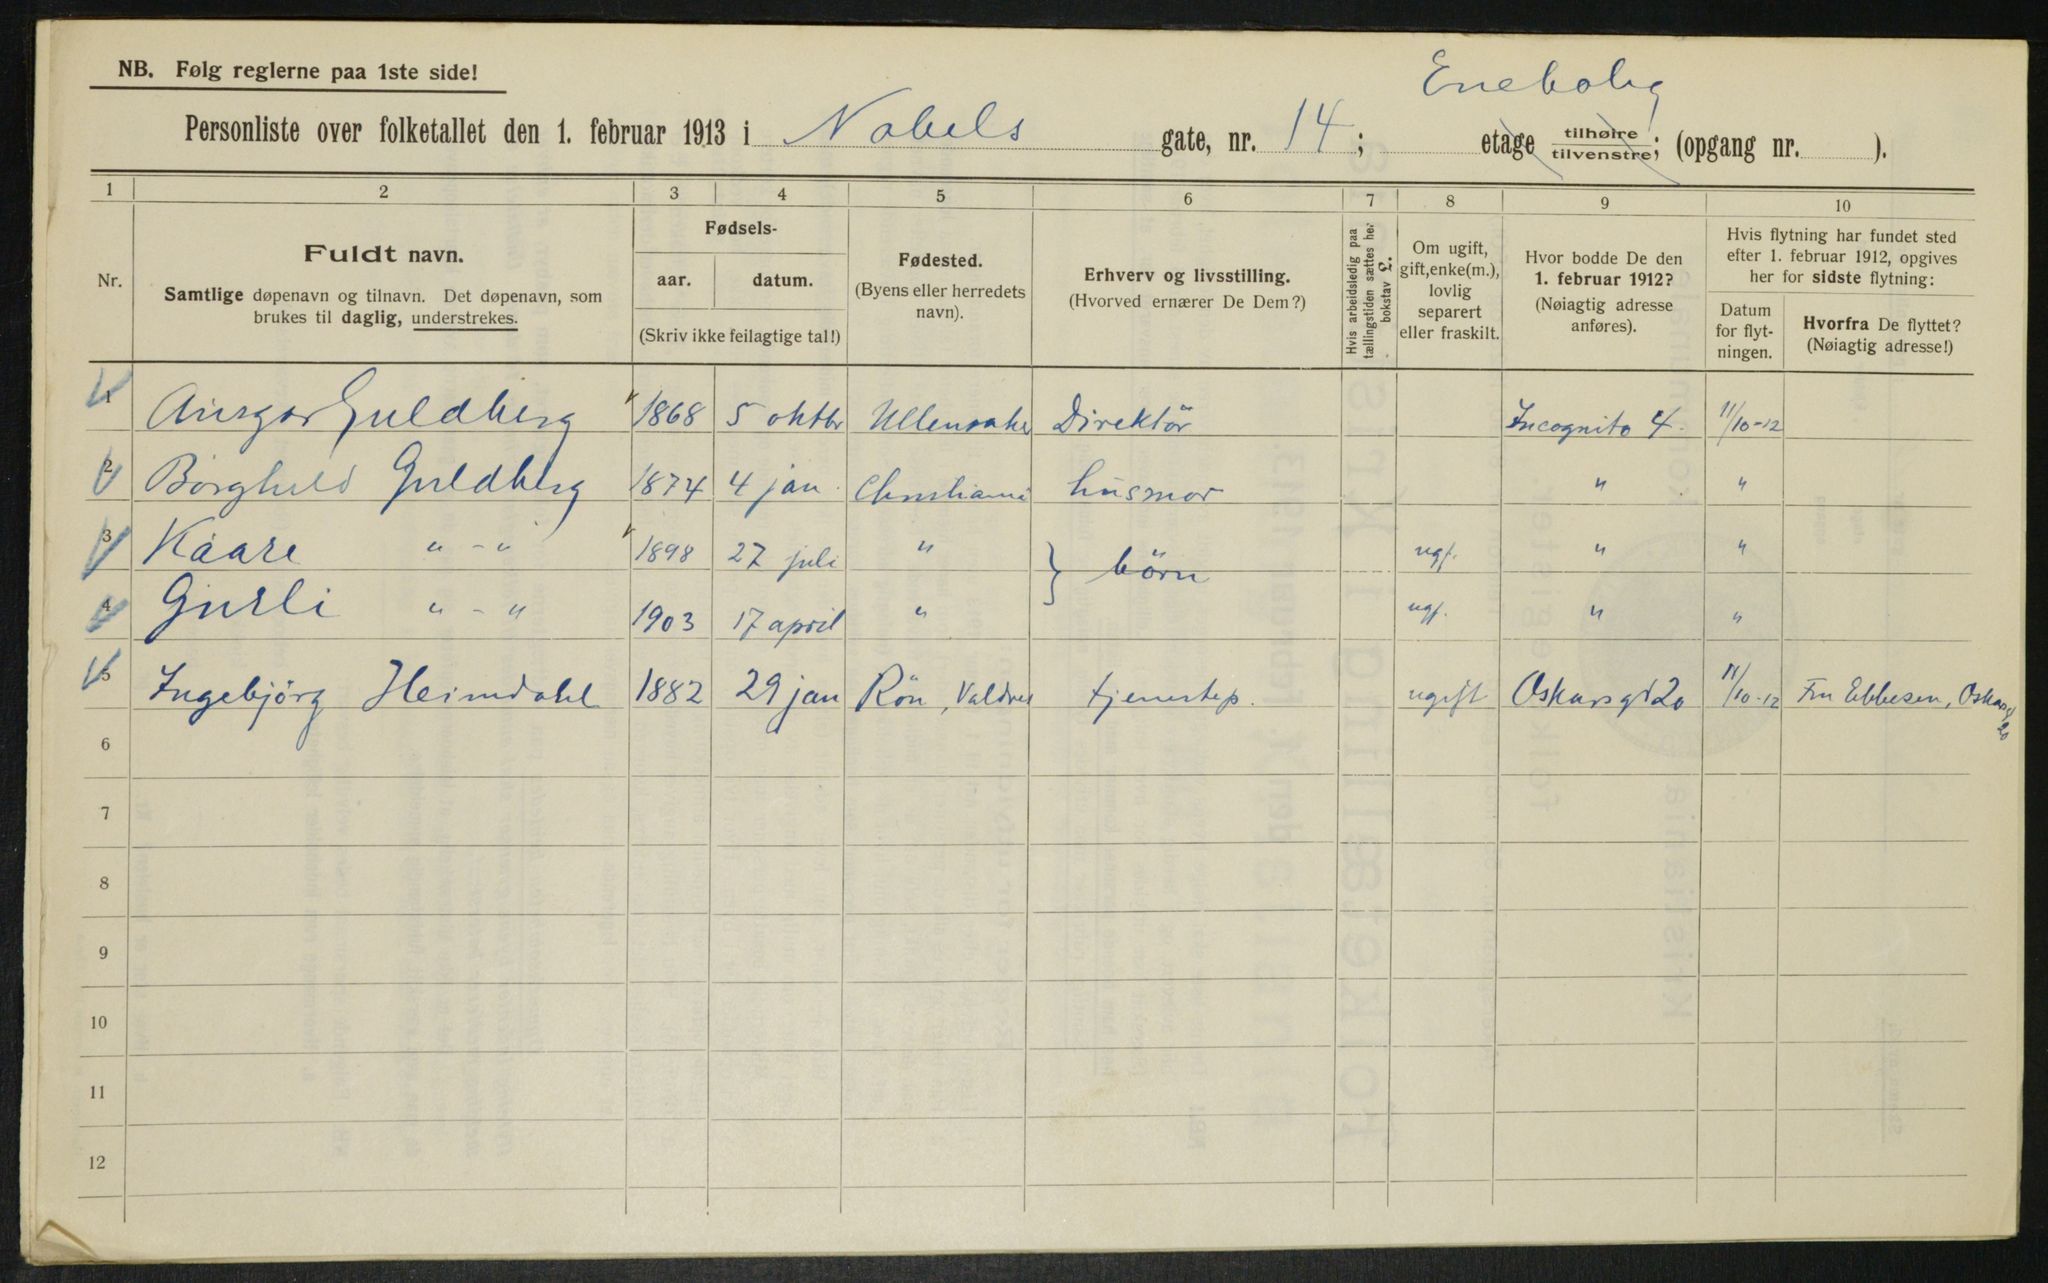 NB. Følg reglerne paa 1ste side!
Enebolig
Personliste over folketallet den 1. februar 1913 i Nobels gate, nr. 14; etage tilhøire tilvenstre; (opgang nr. ).
1 2 3 4 5 6 7 8 9 10
Nr.
Fuldt navn.
Samtlige døpenavn og tilnavn. Det døpenavn, som
brukes til daglig, understrekes.
Fødsels-
aar. datum.
(Skriv ikke feilagtige tal!)
Fødested.
(Byens eller herredets
navn).
Erhverv og livsstilling.
(Hvorved ernærer De Dem?)
Hvis arbeidsledig paa
tællingstiden sættes her
bokstav £.
Om ugift,
gift, enke(m.),
lovlig
separert
eller fraskilt.
Hvor bodde De den
1. februar 1912?
(Nøiagtig adresse
anføres).
Hvis flytning har fundet sted
efter 1. februar 1912, opgives
her for sidste flytning:
Datum
for flyt-
ningen.
Hvorfra De flyttet?
(Nøiagtig adresse!)
1 Ansgar Guldberg 1868 5 oktbr Ullensaker Direktör Incognito 4. 11/10-12
2 Borghild Guldberg 1874 4 jan. Christiania husmor " "
3 Kaare " - " 1898 27 juli " } börn ugf. " "
4 Gurli " - " 1903 17 april " ugf. " "
5 Ingebjörg Heimdahl 1882 29 jan Rön, Valdres tjenestep. ugift Oskarsgt 20 11/10-12 Fru Ebbesen, Oskarsgt 20
6
7
8
9
10
11
12